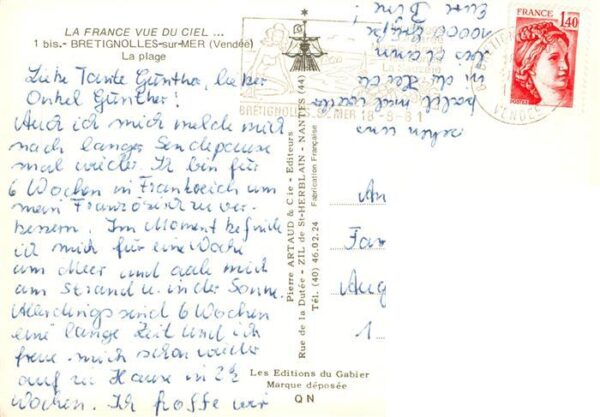 LA FRANCE VUE DU CIEL ...
1 bis.- BRETIGNOLLES-sur-MER (Vendée)
La plage
Liebe Tante Günther, lieber
Onkel Günther!
Auch ich mich melde mich
nach langer Sendepause
mal wieder. Ich bin für
6 Wochen in Frankreich um
mein Französisch zu ver-
bessern. Im Moment befinde
ich mich für eine Woche
am Meer und aale mich
am Strand u. in der Sonne.
Allerdings sind 6 Wochen
eine lange Zeit und ich
freue mich schon wieder
auf zu Hause in 2½
Wochen. Ich hoffe wir
sehen uns
bald mal wieder
in du
10000 Grüße
Eure
Pierre ARTAUD & Cie - Editeurs
Rue de la Dutée - ZIL de St-HERBLAIN - NANTES (44)
Tél. (40) 46.02.24
Fabrication Française
Les Editions du Gabier
Marque déposée
QN
BRETIGNOLLES S. MER 18-8-81
FRANCE
1,40
POSTES
VENDEE
An
Fam
Aug
1